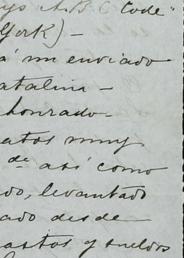 A. B. C Code"
York) —
á mi enviado
atalina —
honrado
atos muy
de así como
do, levantado
ado desde
astos y sueldos